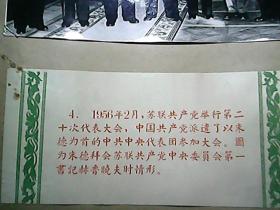 4. 1956年2月，苏联共产党举行第二
十次代表大会，中国共产党派遣了以朱
德为首的中共中央代表团参加大会。圖
为朱德拜会苏联共产党中央委員会第一
書記赫魯曉夫时情形。